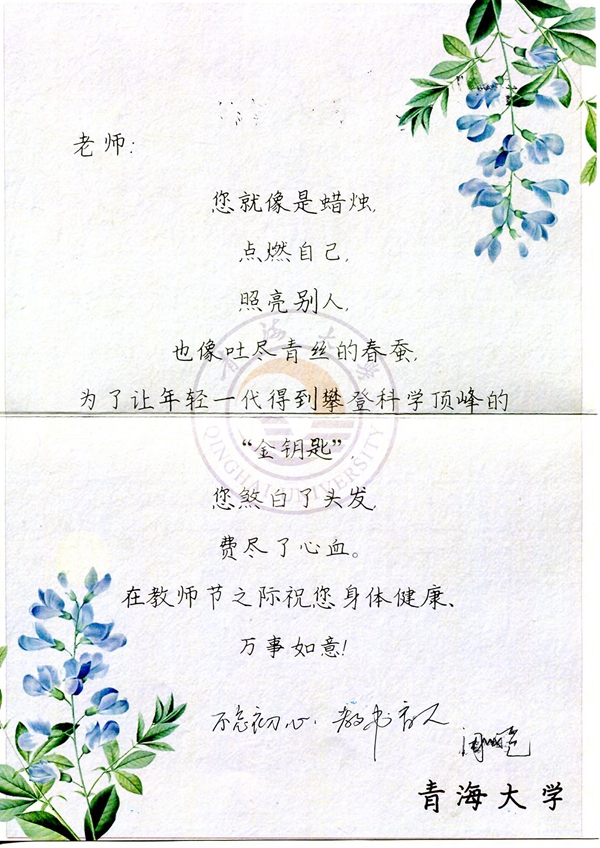 老师:
您就像是蜡烛,
点燃自己,
照亮别人,
也像吐尽青丝的春蚕,
为了让年轻一代得到攀登科学顶峰的
“金钥匙”,
您煞白了头发,
费尽了心血。
在教师节之际祝您身体健康、
万事如意!
不忘初心、教书育人
青海大学
青海大学
QINGHAI UNIVERSITY